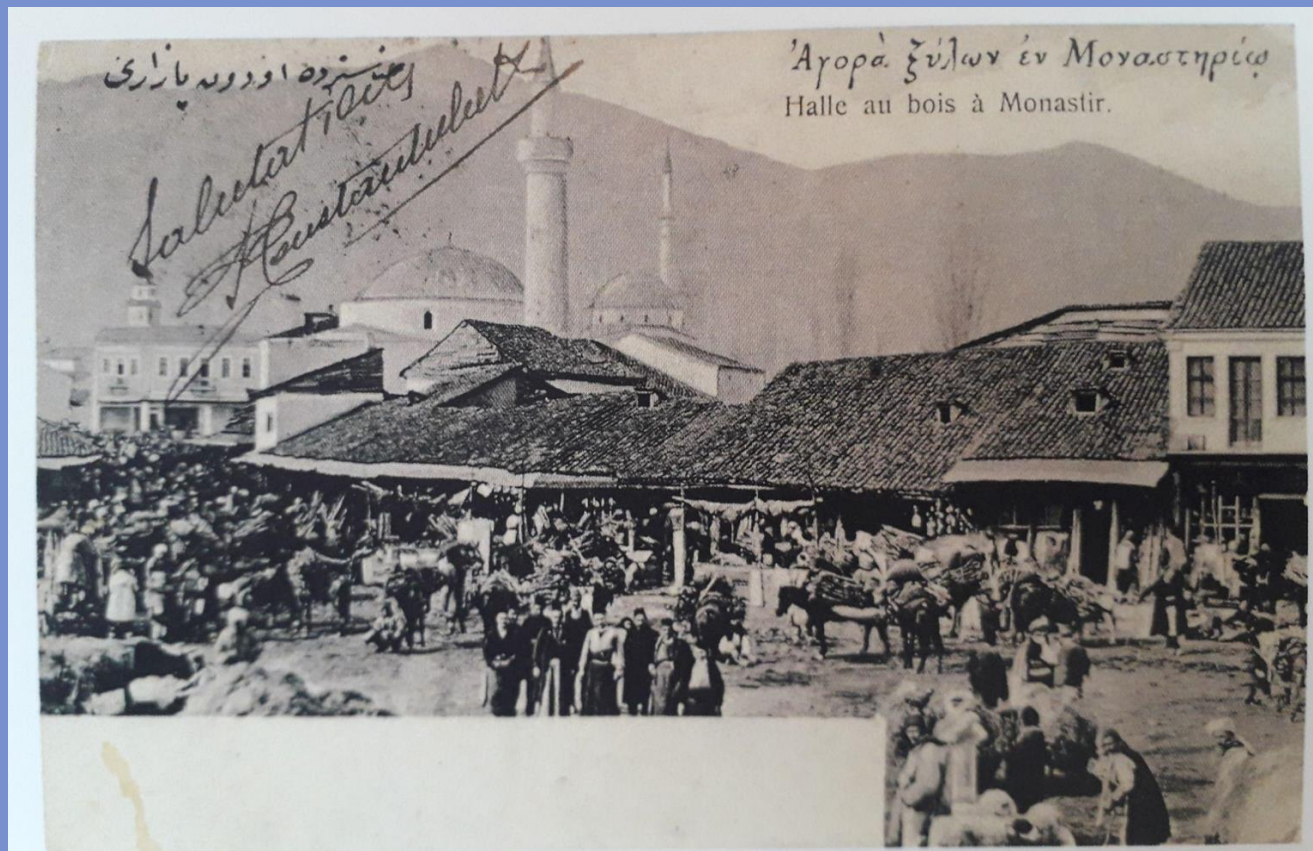 مناستردە اودون پازاری
Ἀγορὰ ξύλων ἐν Μοναστηρίῳ
Halle au bois à Monastir.
Salutations